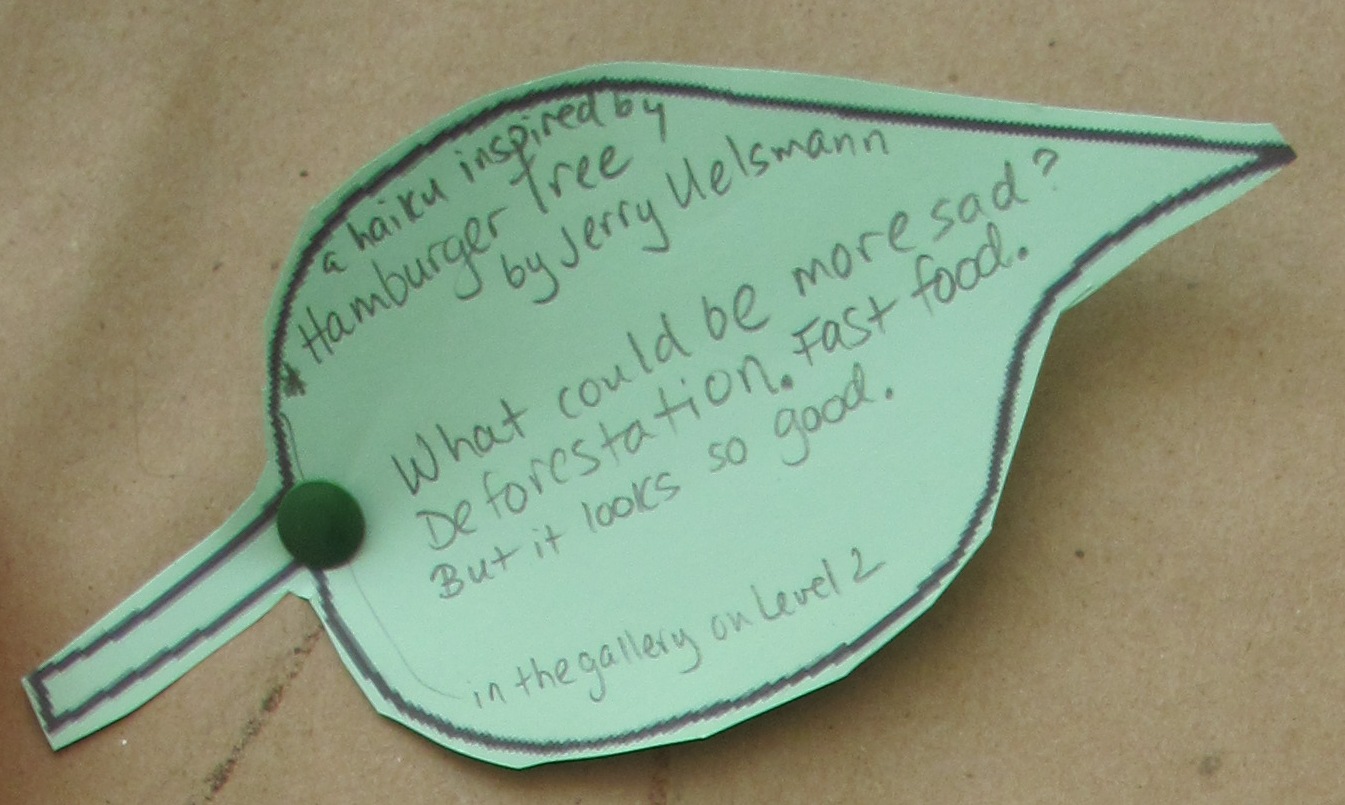 a haiku inspired by
Hamburger Tree
by Jerry Uelsmann
What could be more sad?
Deforestation. Fast food.
But it looks so good.
in the gallery on Level 2